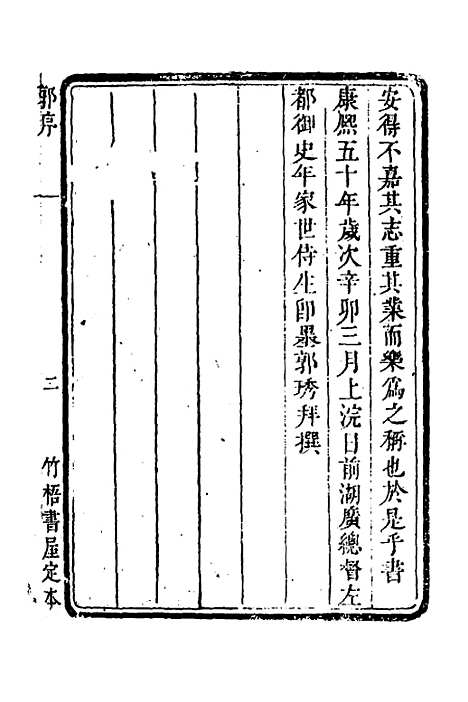 安得不嘉其志重其業而樂爲之稱也於是乎書
康熙五十年歲次辛卯三月上浣日前湖廣總督左
都御史年家世侍生卽墨郭琇拜撰
郭序
二
竹梧書屋定本